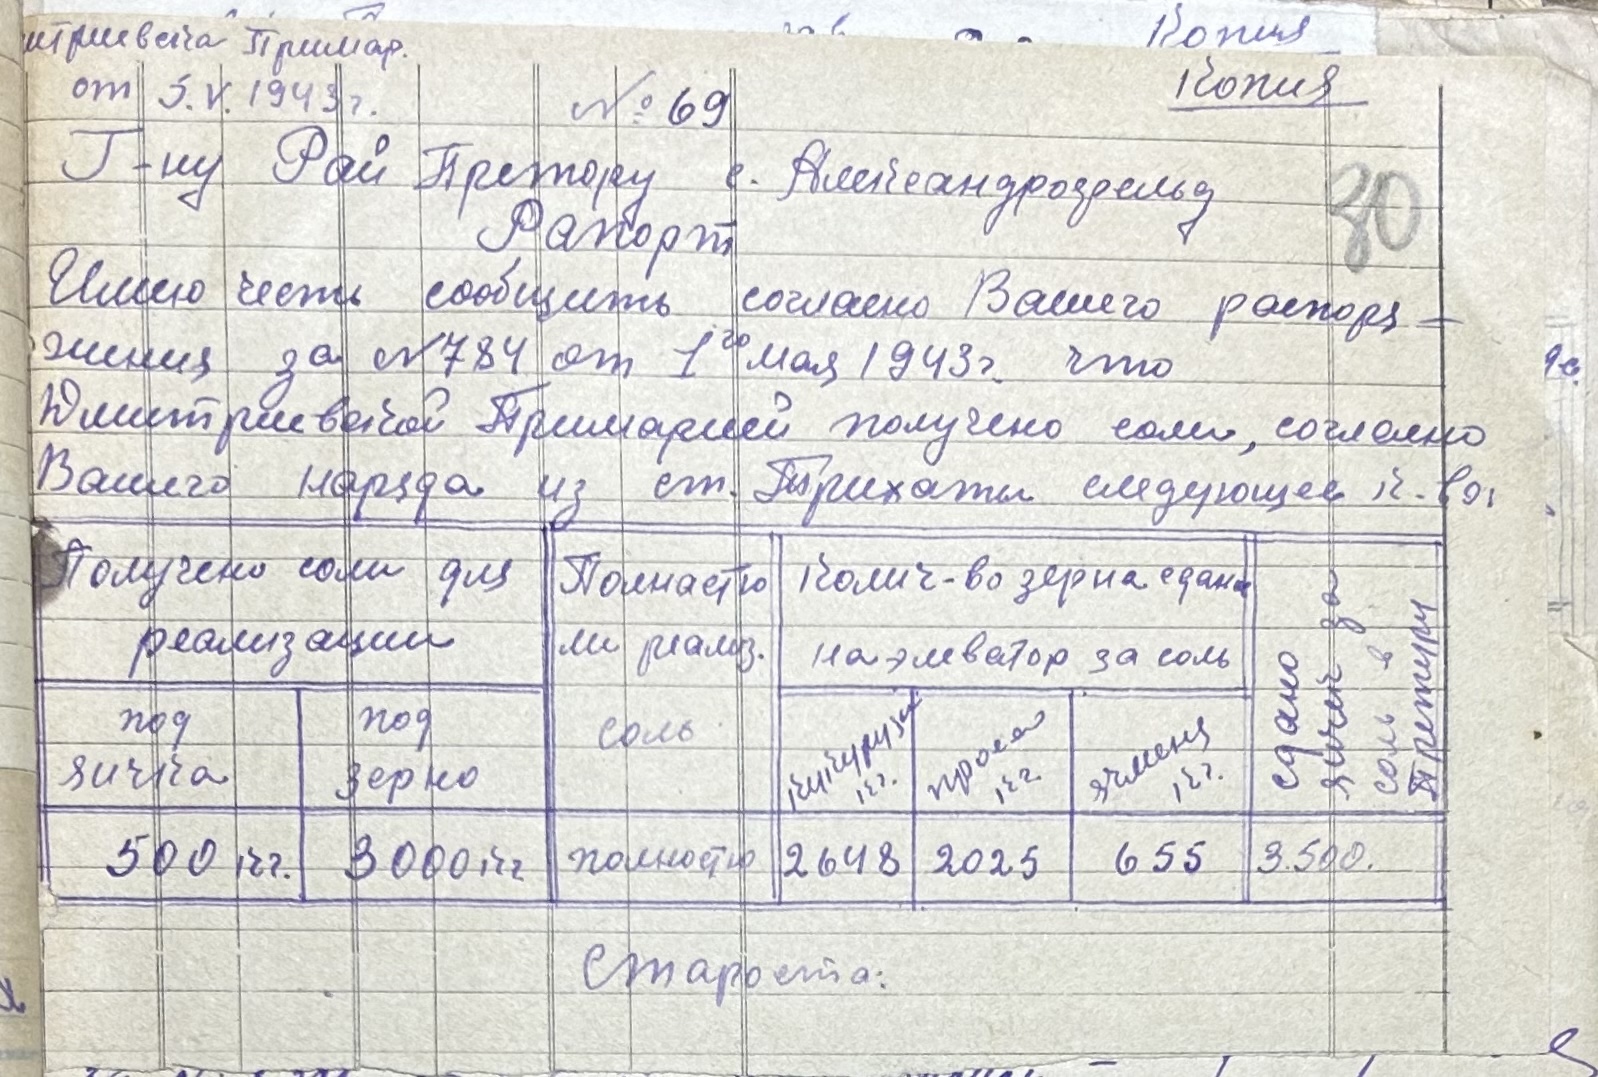 Копия
Копия
Примар.
от 5.V.1943г. № 69
80
Г-ну Рай Претору с. Александрофельд
Рапорт
Имею честь сообщить согласно Вашего распоря-
жения за №784 от 1го мая 1943г. что
Дмитриевской Примарией получено соли, согласно
Вашего наряда из ст. Трихаты следующее к-во:
Получено соли для
реализации
под
яичка
под
зерно
Полнастю
ли реализ.
соль
Колич-во зерна сдано
на элеватор за соль
кукурузы
кг.
проса
кг
ячменя
кг.
сдано
яичек за
соль в
Претуру
500 кг. 3000 кг полностю 2648 2025 655 3.500.
Староста: